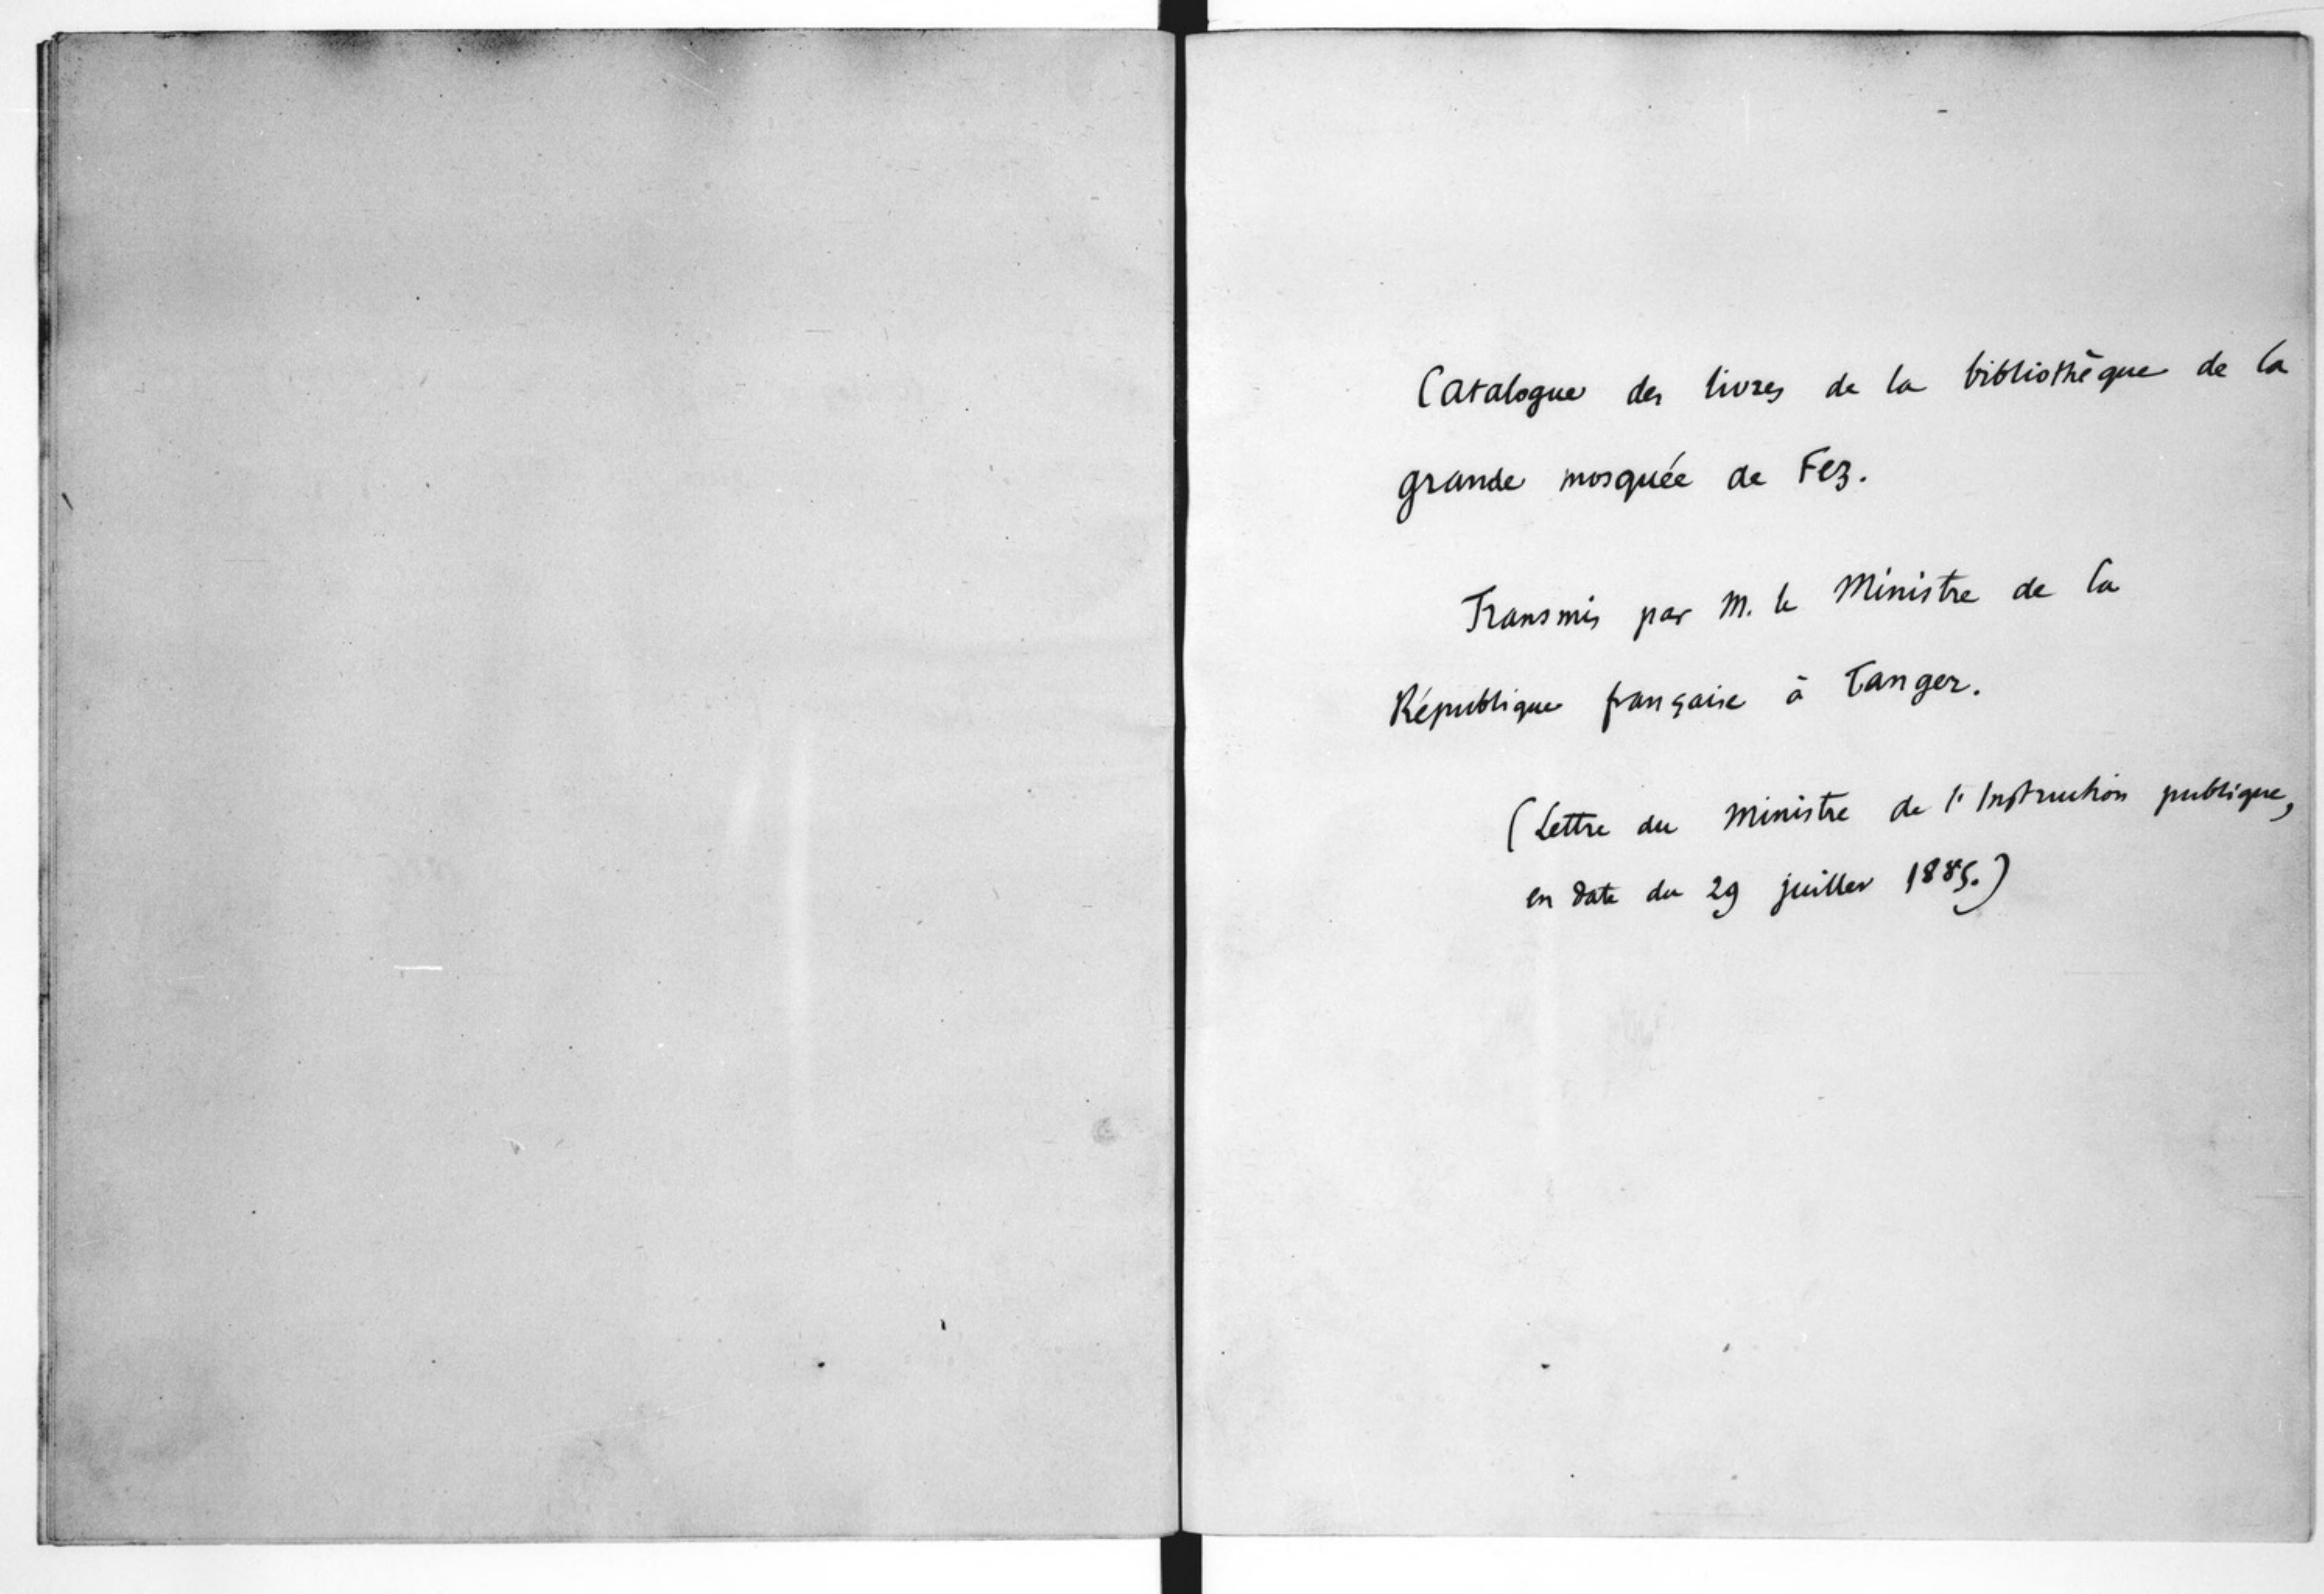 Catalogue des livres de la bibliothèque de la
grande mosquée de Fez.
Transmis par M. le Ministre de la
République française à Tanger.
(Lettre du Ministre de l'Instruction publique,
en date du 29 juillet 1885.)